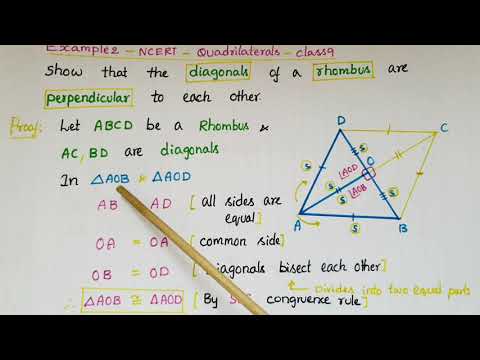 Example 2 - NCERT - Quadrilaterals - class 9
Show that the diagonals of a rhombus are
perpendicular to each other.
Proof: Let ABCD be a Rhombus &
AC, BD are diagonals
In △AOB & △AOD
AB AD [all sides are
equal]
OA = OA [common side]
OB = OD [Diagonals bisect each other]
Divides into two equal parts
∴ △AOB ≅ △AOD [By congruence rule]
D
C
O
S
S
AOD
S
AOB
S
S
A
S
B